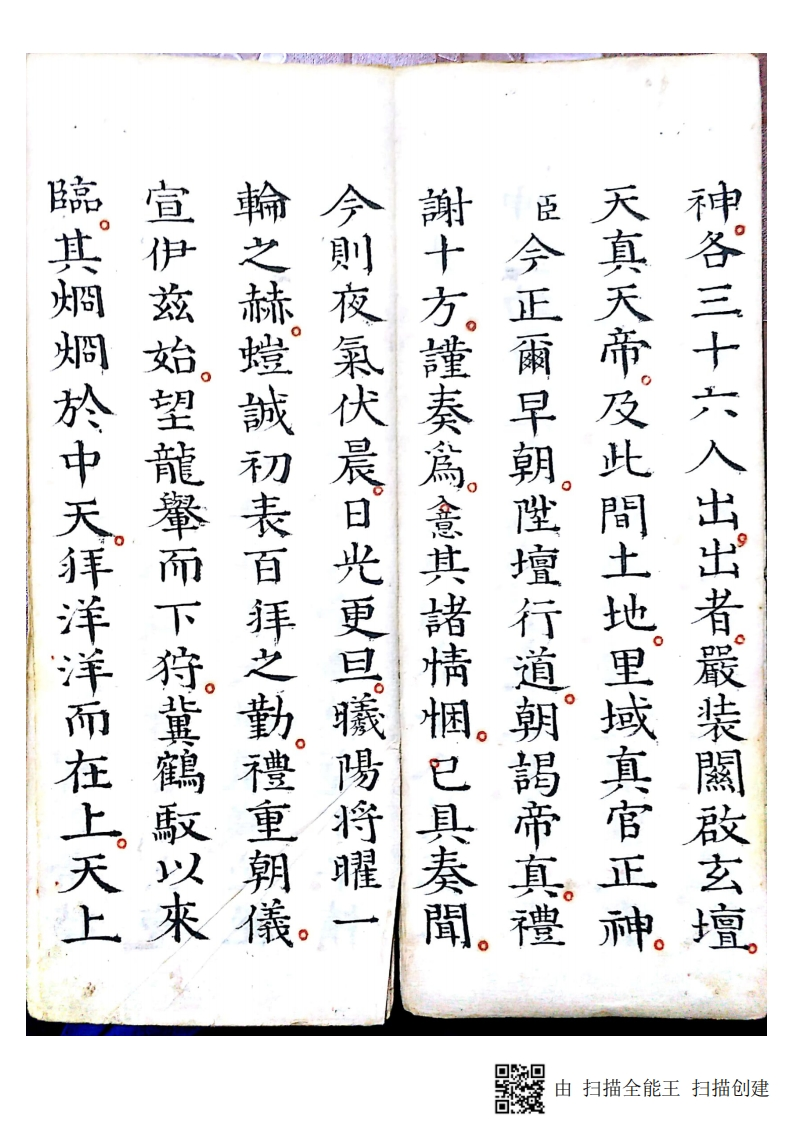 神。各三十六人出。出者。嚴装關啟玄壇。
天真天帝。及此間土地。里域真官正神。
臣今正爾早朝。陞壇行道。朝謁帝真。禮
謝十方。謹奏爲。入意其諸情悃。已具奏聞。
今則夜氣伏晨。日光更旦。曦陽将曜一
輪之赫。螘誠初表百拜之勤。禮重朝儀。
宣伊兹始。望龍轝而下狩。冀鶴馭以來
臨。其烱烱於中天。拜洋洋而在上。天上
由 扫描全能王 扫描创建